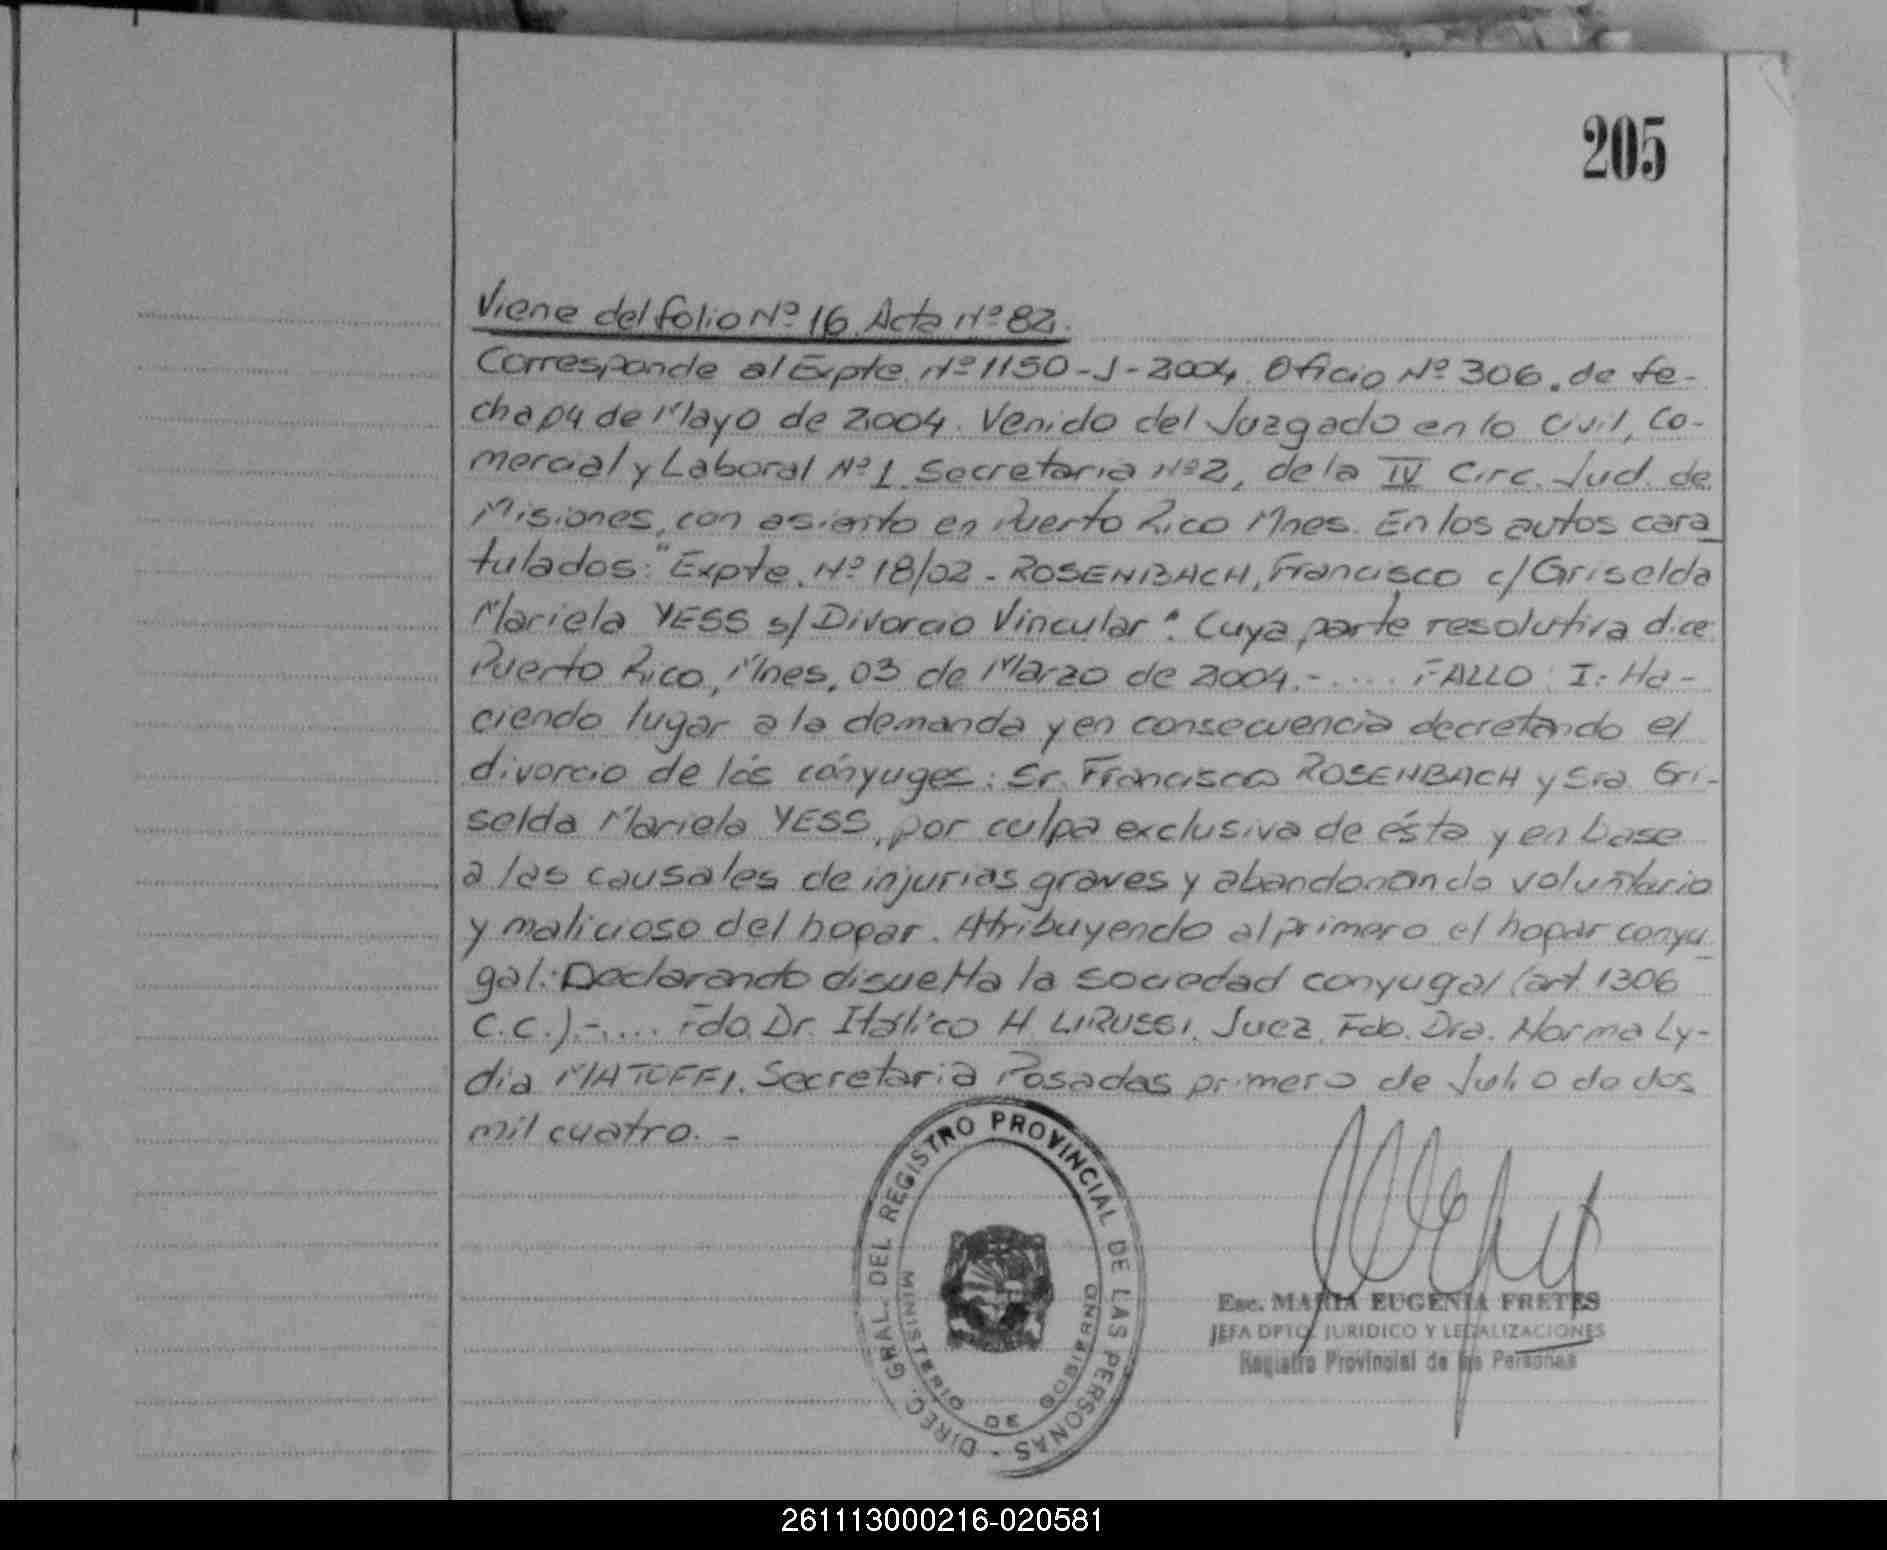 205
Viene del folio Nº 16. Acta Nº 82.
Corresponde al Expte. Nº 1150-J-2004. Oficio Nº 306. de fe-
cha 04 de Mayo de 2004. Venido del Juzgado en lo Civil, Co-
mercial y Laboral Nº 1. Secretaria Nº 2, de la IV Circ. Jud. de
Misiones, con asiento en Puerto Rico Mnes. En los autos cara_
tulados: "Expte. Nº 18/02 - ROSENBACH, Francisco c/ Griselda
Mariela YESS s/ Divorcio Vincular". Cuya parte resolutiva dice
Puerto Rico, Mnes, 03 de Marzo de 2004.-.... FALLO: I: Ha-
ciendo lugar a la demanda y en consecuencia decretando el
divorcio de los cónyuges: Sr. Francisco ROSENBACH y Sra. Gri-
selda Mariela YESS, por culpa exclusiva de ésta y en base
a las causales de injurias graves y abandonando voluntario
y malicioso del hogar. Atribuyendo al primero el hogar conyu_
gal: Declarando disuelta la sociedad conyugal (art. 1306
C.C.).-.... Fdo. Dr. Itálico H. LIRUSSI. Juez. Fdo. Dra. Norma Ly-
dia MATOFFI. Secretaria Posadas primero de Julio de dos
mil cuatro. -
DIREC. GRAL. DEL REGISTRO PROVINCIAL DE LAS PERSONAS -
MINISTERIO DE GOBIERNO
Esc. MARIA EUGENIA FRETES
JEFA DPTO. JURIDICO Y LEGALIZACIONES
Registro Provincial de las Personas
261113000216-020581